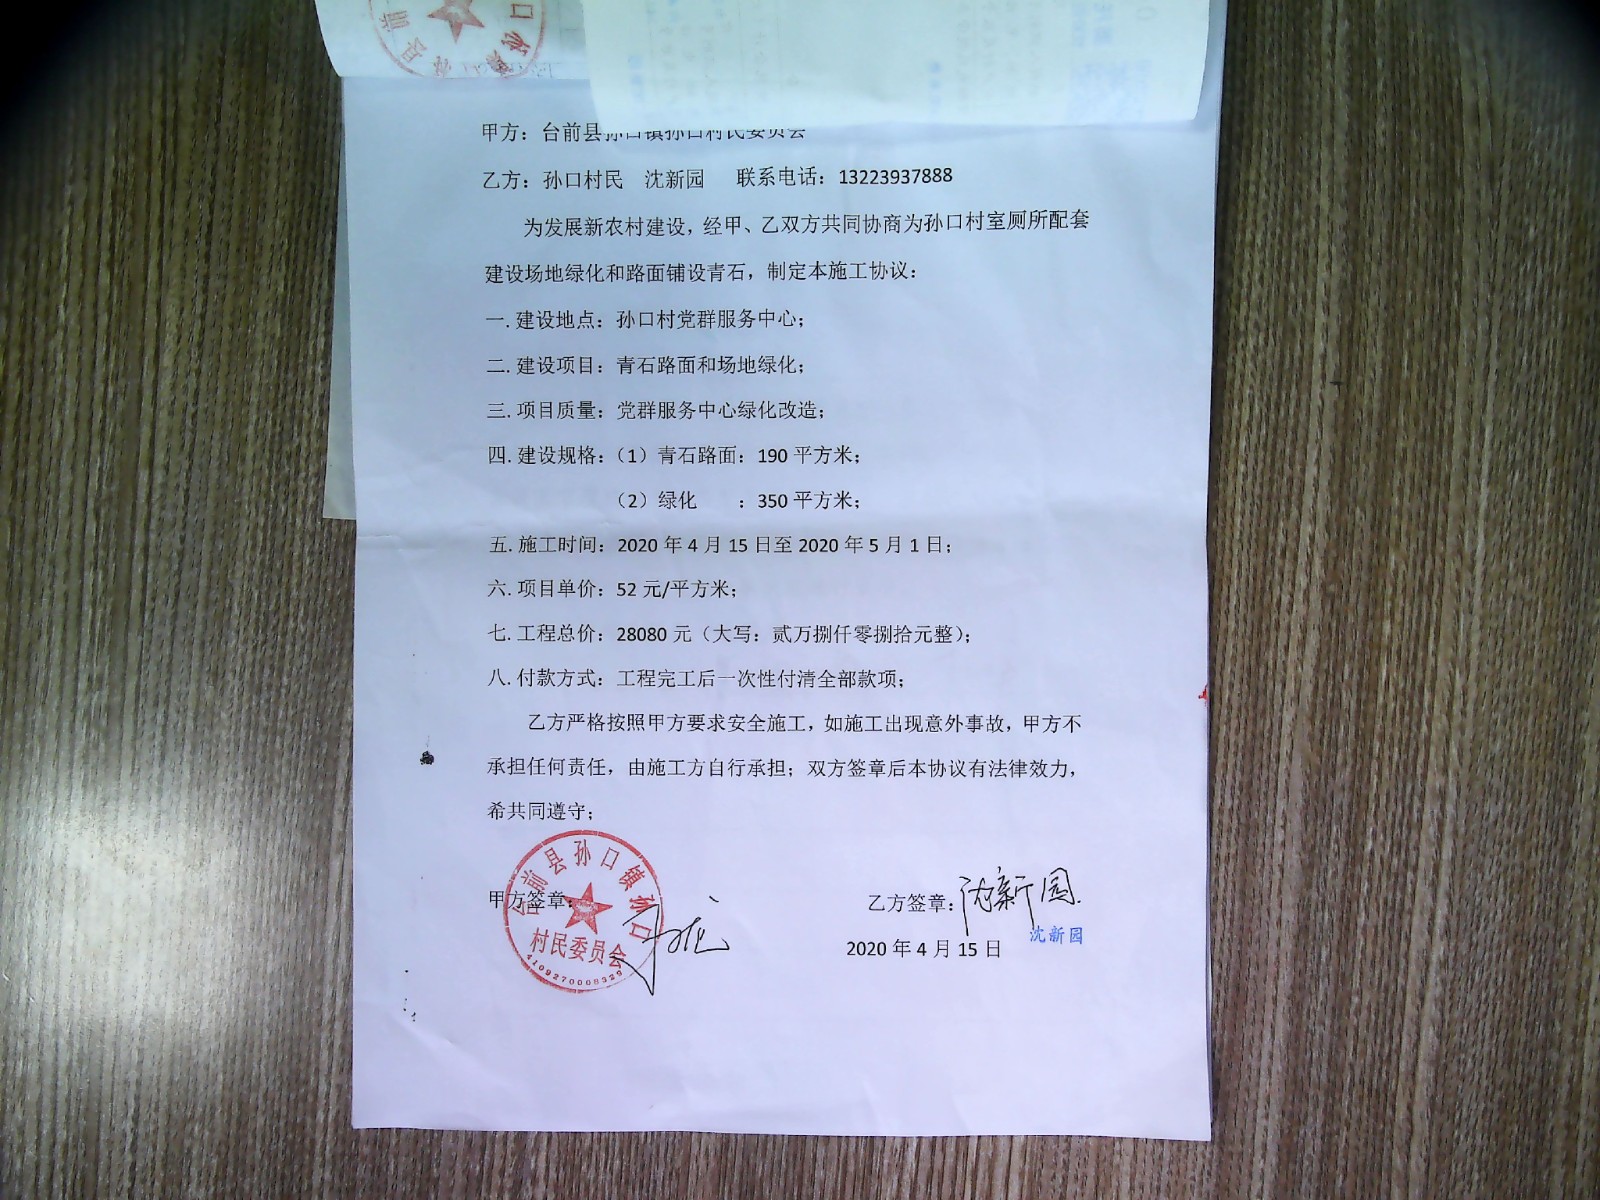 甲方：台前县孙口镇孙口村民委员会
乙方：孙口村民 沈新园 联系电话：13223937888
为发展新农村建设，经甲、乙双方共同协商为孙口村室厕所配套
建设场地绿化和路面铺设青石，制定本施工协议：
一.建设地点：孙口村党群服务中心；
二.建设项目：青石路面和场地绿化；
三.项目质量：党群服务中心绿化改造；
四.建设规格：（1）青石路面：190 平方米；
（2）绿化 ：350 平方米；
五.施工时间：2020 年 4 月 15 日至 2020 年 5 月 1 日；
六.项目单价：52 元/平方米；
七.工程总价：28080 元（大写：贰万捌仟零捌拾元整）；
八.付款方式：工程完工后一次性付清全部款项；
乙方严格按照甲方要求安全施工，如施工出现意外事故，甲方不
承担任何责任，由施工方自行承担；双方签章后本协议有法律效力，
希共同遵守；
台前县孙口镇孙口
甲方签章：
村民委员会
4109270008329
乙方签章：沈新园
沈新园
2020 年 4 月 15 日